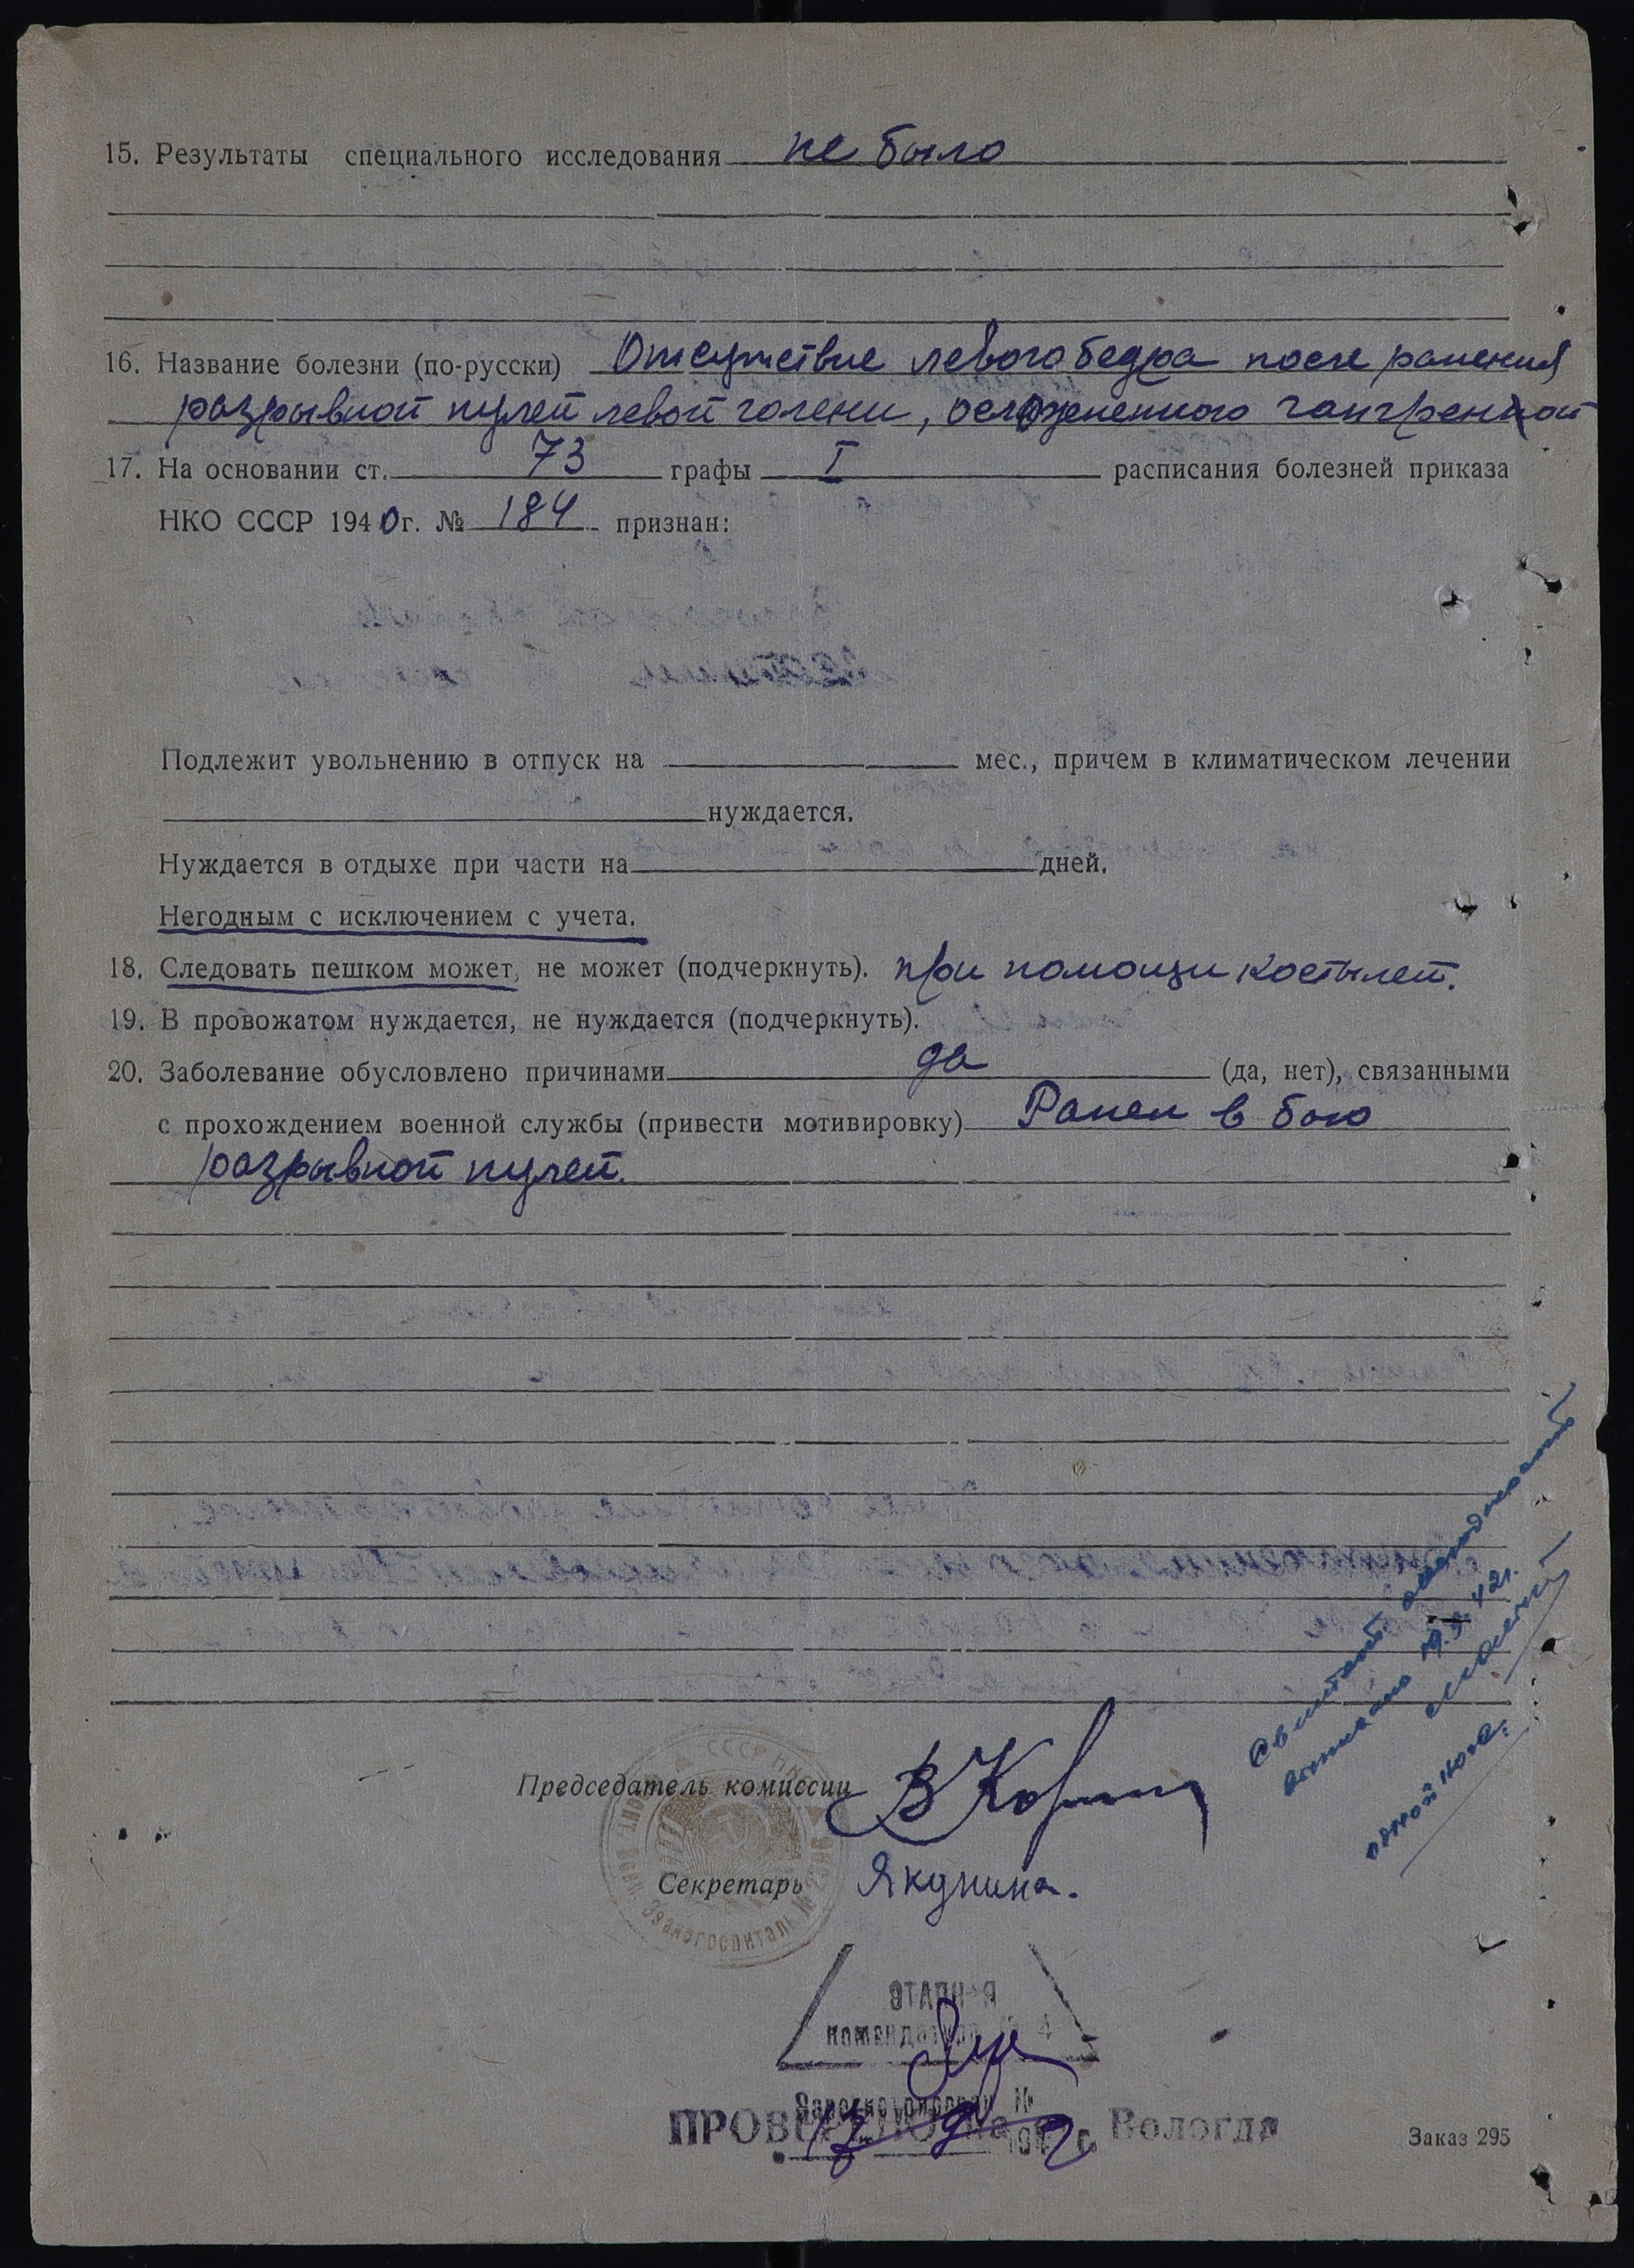 15. Результаты специального исследования не было
16. Название болезни (по-русски) Отсутствие левого бедра после ранения
разрывной пулей левой голени, осложненного гангреной
17. На основании ст. 73 графы I расписания болезней приказа
НКО СССР 1940г. № 184 признан:
Подлежит увольнению в отпуск на мес., причем в климатическом лечении
нуждается.
Нуждается в отдыхе при части на дней.
Негодным с исключением с учета.
18. Следовать пешком может, не может (подчеркнуть). при помощи костылей.
19. В провожатом нуждается, не нуждается (подчеркнуть).
20. Заболевание обусловлено причинами да (да, нет), связанными
с прохождением военной службы (привести мотивировку) Ранен в бою
разрывной пулей.
одной ноге.
Председатель комиссии
СССР НКО
Эвакогоспиталь №
Секретарь Якунина.
ЭТАПНАЯ
комендатура № 4
Зарегистрирован №
ПРОВЕРЕНО на ст. Вологда
Заказ 295